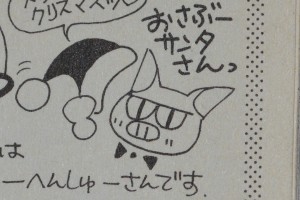 クリスマスツリ
おさぶー
サンタ
さんっ
は
ーへんしゅーさんです.